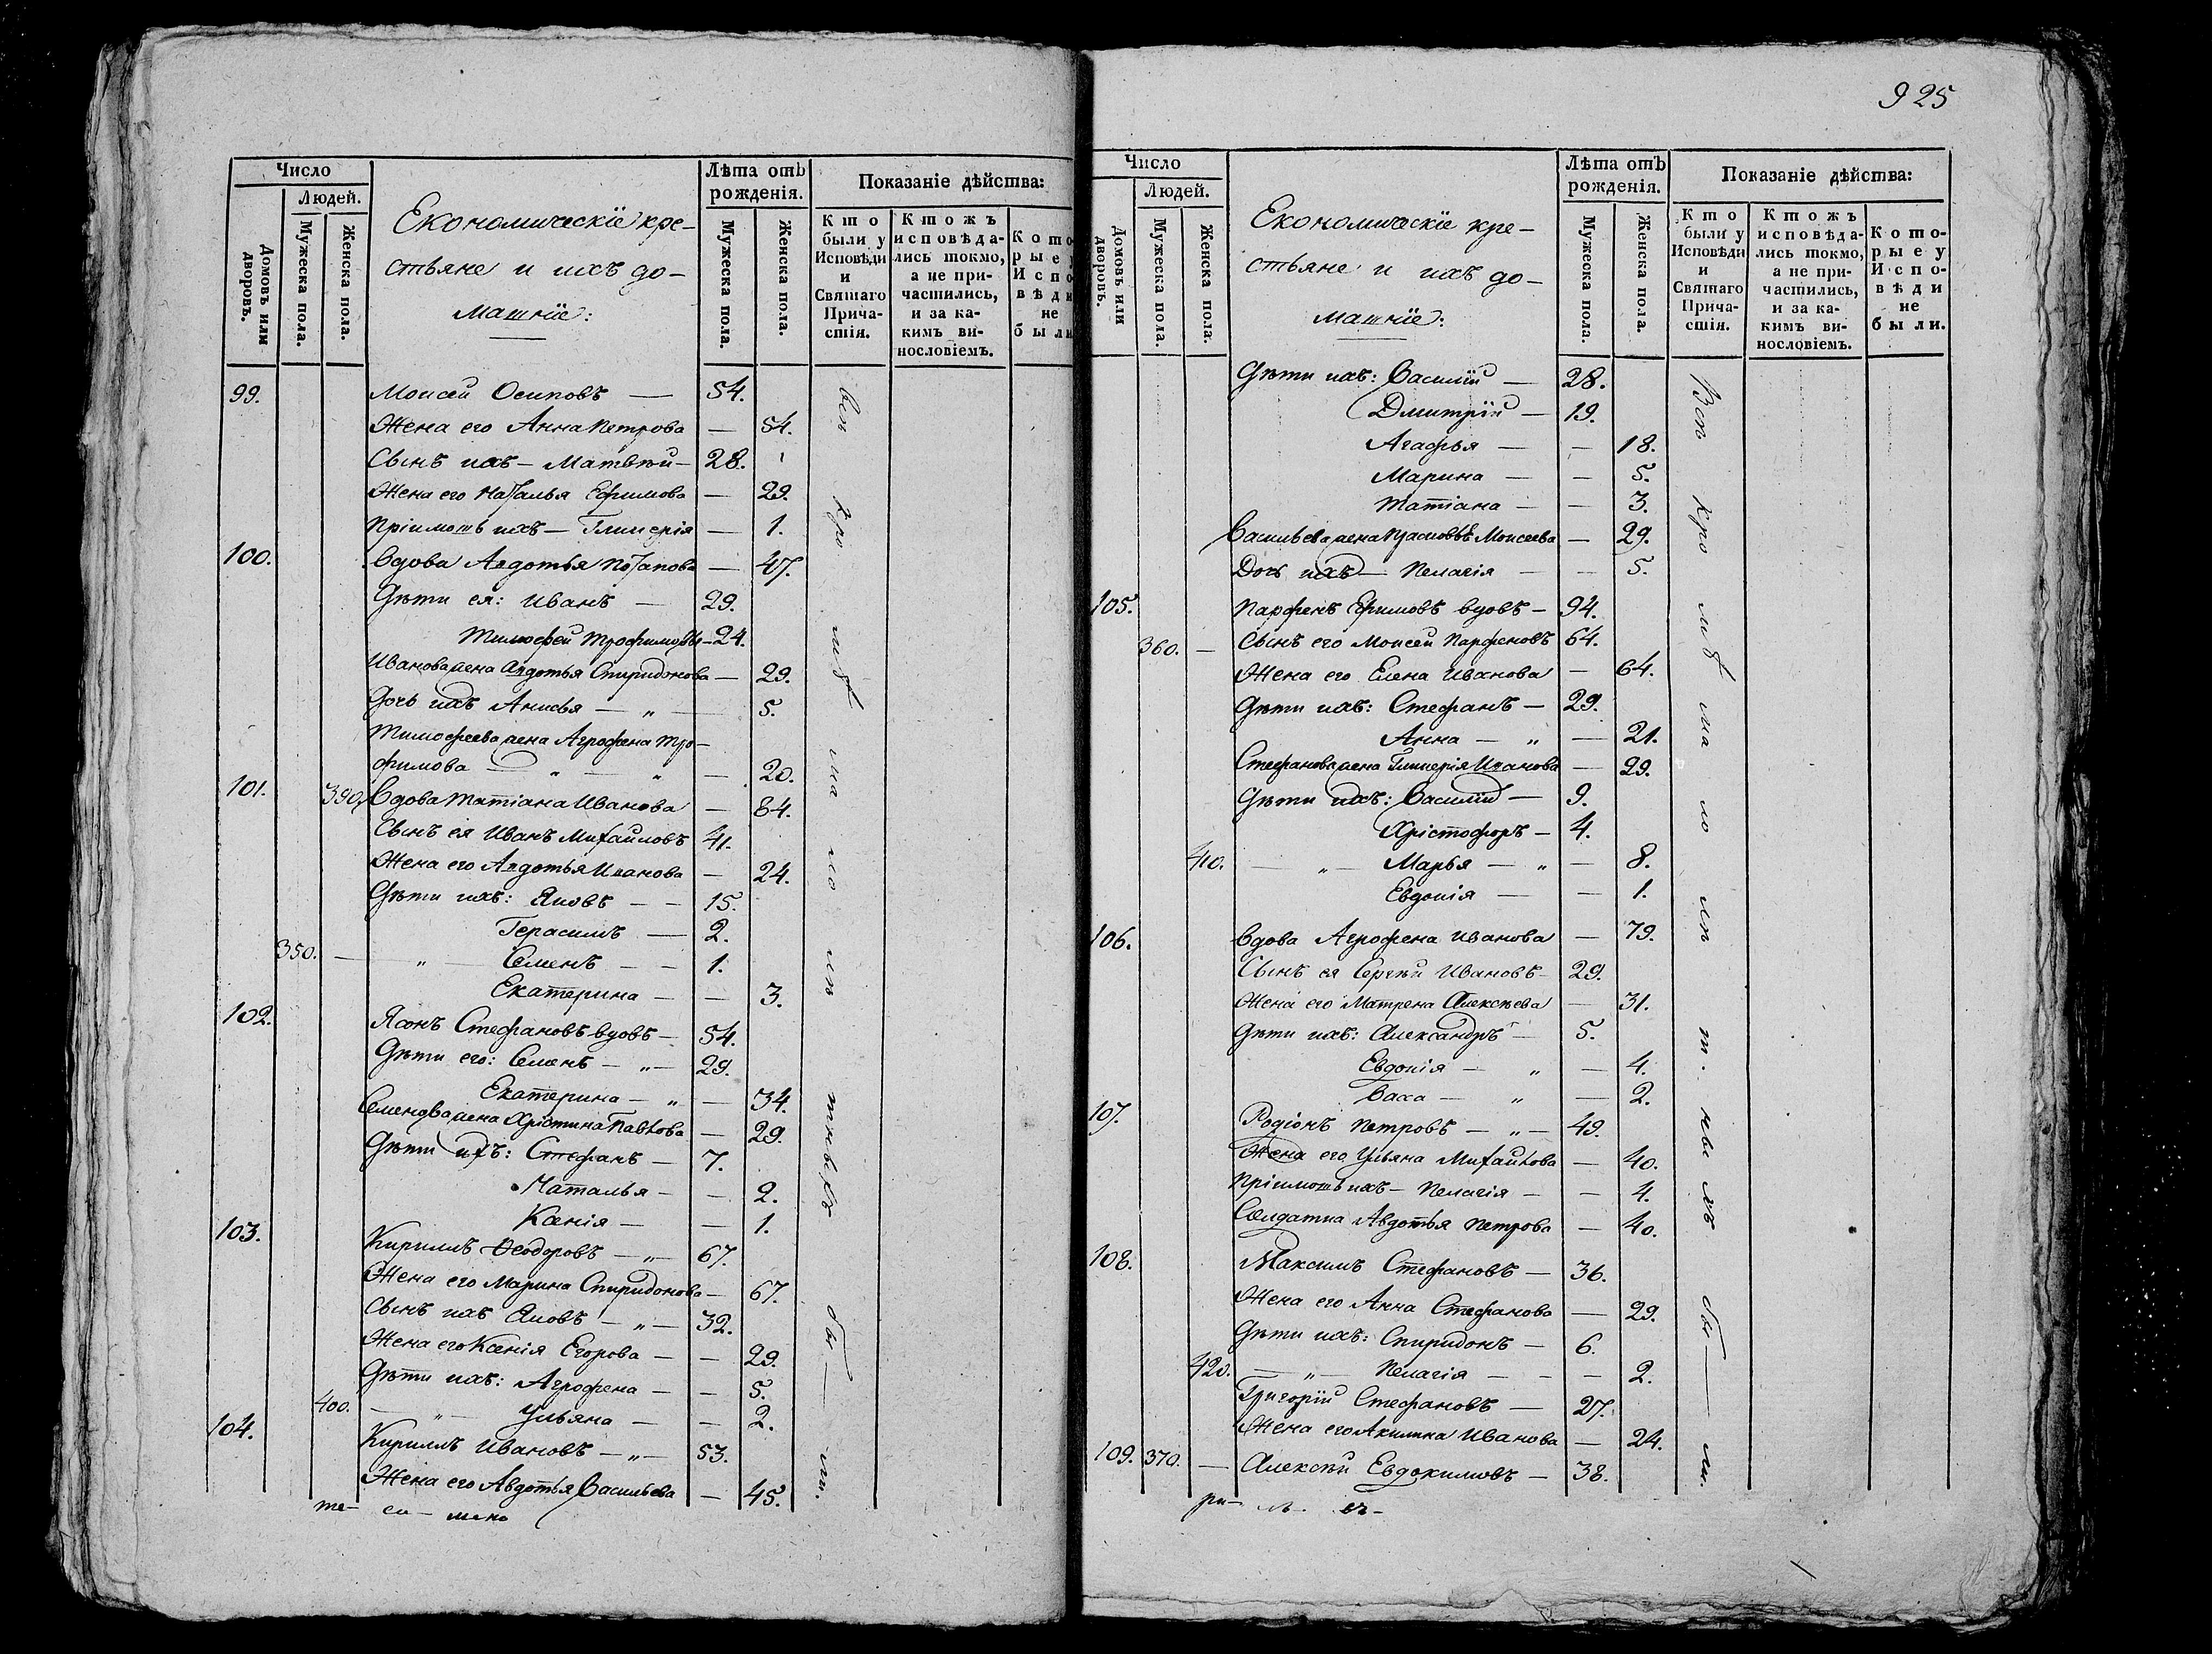 925
Число
Людей.
Домовъ или дворовъ.
Мужеска пола.
Женска пола.
Економическіе кре-
стьяне и ихъ до-
машніе:
Лѣта отъ рожденія.
Мужеска пола.
Женска пола.
Показаніе дѣйства:
Кто были у Исповѣди и Святаго Причастія.
Ктожъ исповѣдались токмо, а не причастились, и за какимъ винословіемъ.
Которые у Исповѣди не были
99. Моисей Осиповъ — 54.
Жена его Анна Петрова — 54.
Сынъ ихъ — Матвѣй — 28.
Жена его Наталья Ефимова — 29.
Пріимышъ ихъ — Гликерія — 1.
100. Вдова Авдотья Потапова — 47.
Дѣти ея: Иванъ — 29.
Тимофей Трофимовы — 24.
Иванова жена Авдотья Спиридонова — 29.
Дочь ихъ Анисья — „ — 5.
Тимофеева жена Агрофена Тро-
фимова — „ — „ — 20.
101. 390. Вдова Татіана Иванова — 84.
Сынъ ея Иванъ Михайловъ 41.
Жена его Авдотья Иванова — 24.
Дѣти ихъ: Яковъ — — 15.
Герасимъ — 2.
350. — „ — Семенъ — — 1.
Екатерина — — 3.
102. Ясонъ Стефановъ вдовъ — 54.
Дѣти его: Семенъ — „ — 29.
Екатерина — „ — 34.
Семенова жена Хрістина Павлова — 29.
Дѣти ихъ: Стефанъ — 7.
Наталья — — 2.
Ксенія — — 1.
103. Кириллъ Ѳеодоровъ — „ — 67.
Жена его Марина Спиридонова — 67.
Сынъ ихъ Яковъ — „ — 32.
Жена его Ксенія Егорова — — 29.
Дѣти ихъ: Агрофена — — 5.
400. — „ — Ульяна — — 2.
104. Кириллъ Ивановъ — „ — 53.
Жена его Авдотья Васильева — 45.
Число
Людей.
Домовъ или дворовъ.
Мужеска пола.
Женска пола.
Економическіе кре-
стьяне и ихъ до-
машніе:
Лѣта отъ рожденія.
Мужеска пола.
Женска пола.
Показаніе дѣйства:
Кто были у Исповѣди и Святаго Причастія.
Ктожъ исповѣдались токмо, а не причастились, и за какимъ винословіемъ.
Которые у Исповѣди не были.
Дѣти ихъ: Василій — 28.
Дмитрій — 19.
Агафья — — 18.
Марина — — 5.
Татіана — — 3.
Васильева жена Моисеева — 29.
Дочь ихъ — Пелагія — — 5.
105. Парфенъ Ефимовъ вдовъ — 94.
360. — Сынъ его Моисей Парфеновъ 64.
Жена его Елена Иванова — 64.
Дѣти ихъ: Стефанъ — 29.
Анна — „ — 21.
Стефанова жена Гликерія Иванова — 29.
Дѣти ихъ: Василій — 9.
Хрістофоръ — 4.
410. — „ — Марья — „ — 8.
Евдокія — — 1.
106. Вдова Агрофена Иванова — 79.
Сынъ ея Сергѣй Ивановъ — 29.
Жена его Матрена Алексѣева — 31.
Дѣти ихъ: Александръ — 5.
Евдокія — „ — 4.
Васса — „ — 2.
107. Родіонъ Петровъ — „ — 49.
Жена его Ульяна Михайлова — 40.
Пріимышъ ихъ — Пелагія — — 4.
Солдатка Авдотья Петрова — 40.
108. Максимъ Стефановъ — 36.
Жена его Анна Стефанова — 29.
Дѣти ихъ: Спиридонъ — 6.
420. — „ — Пелагія — — — 2.
Григорій Стефановъ — 27.
Жена его Акилина Иванова — 24.
109. 370. — Алексѣй Евдокимовъ — 38.